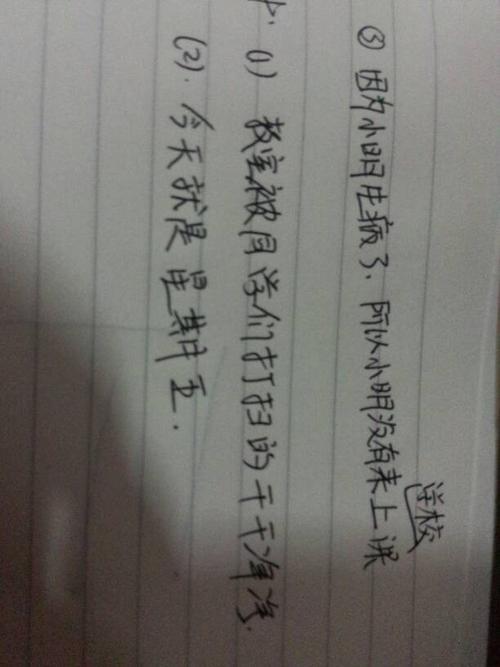 ③ 因为小明生病了、所以小明没有来上课
学校
(1) 教室被同学们打扫的干干净净.
(2). 今天就是星期五.